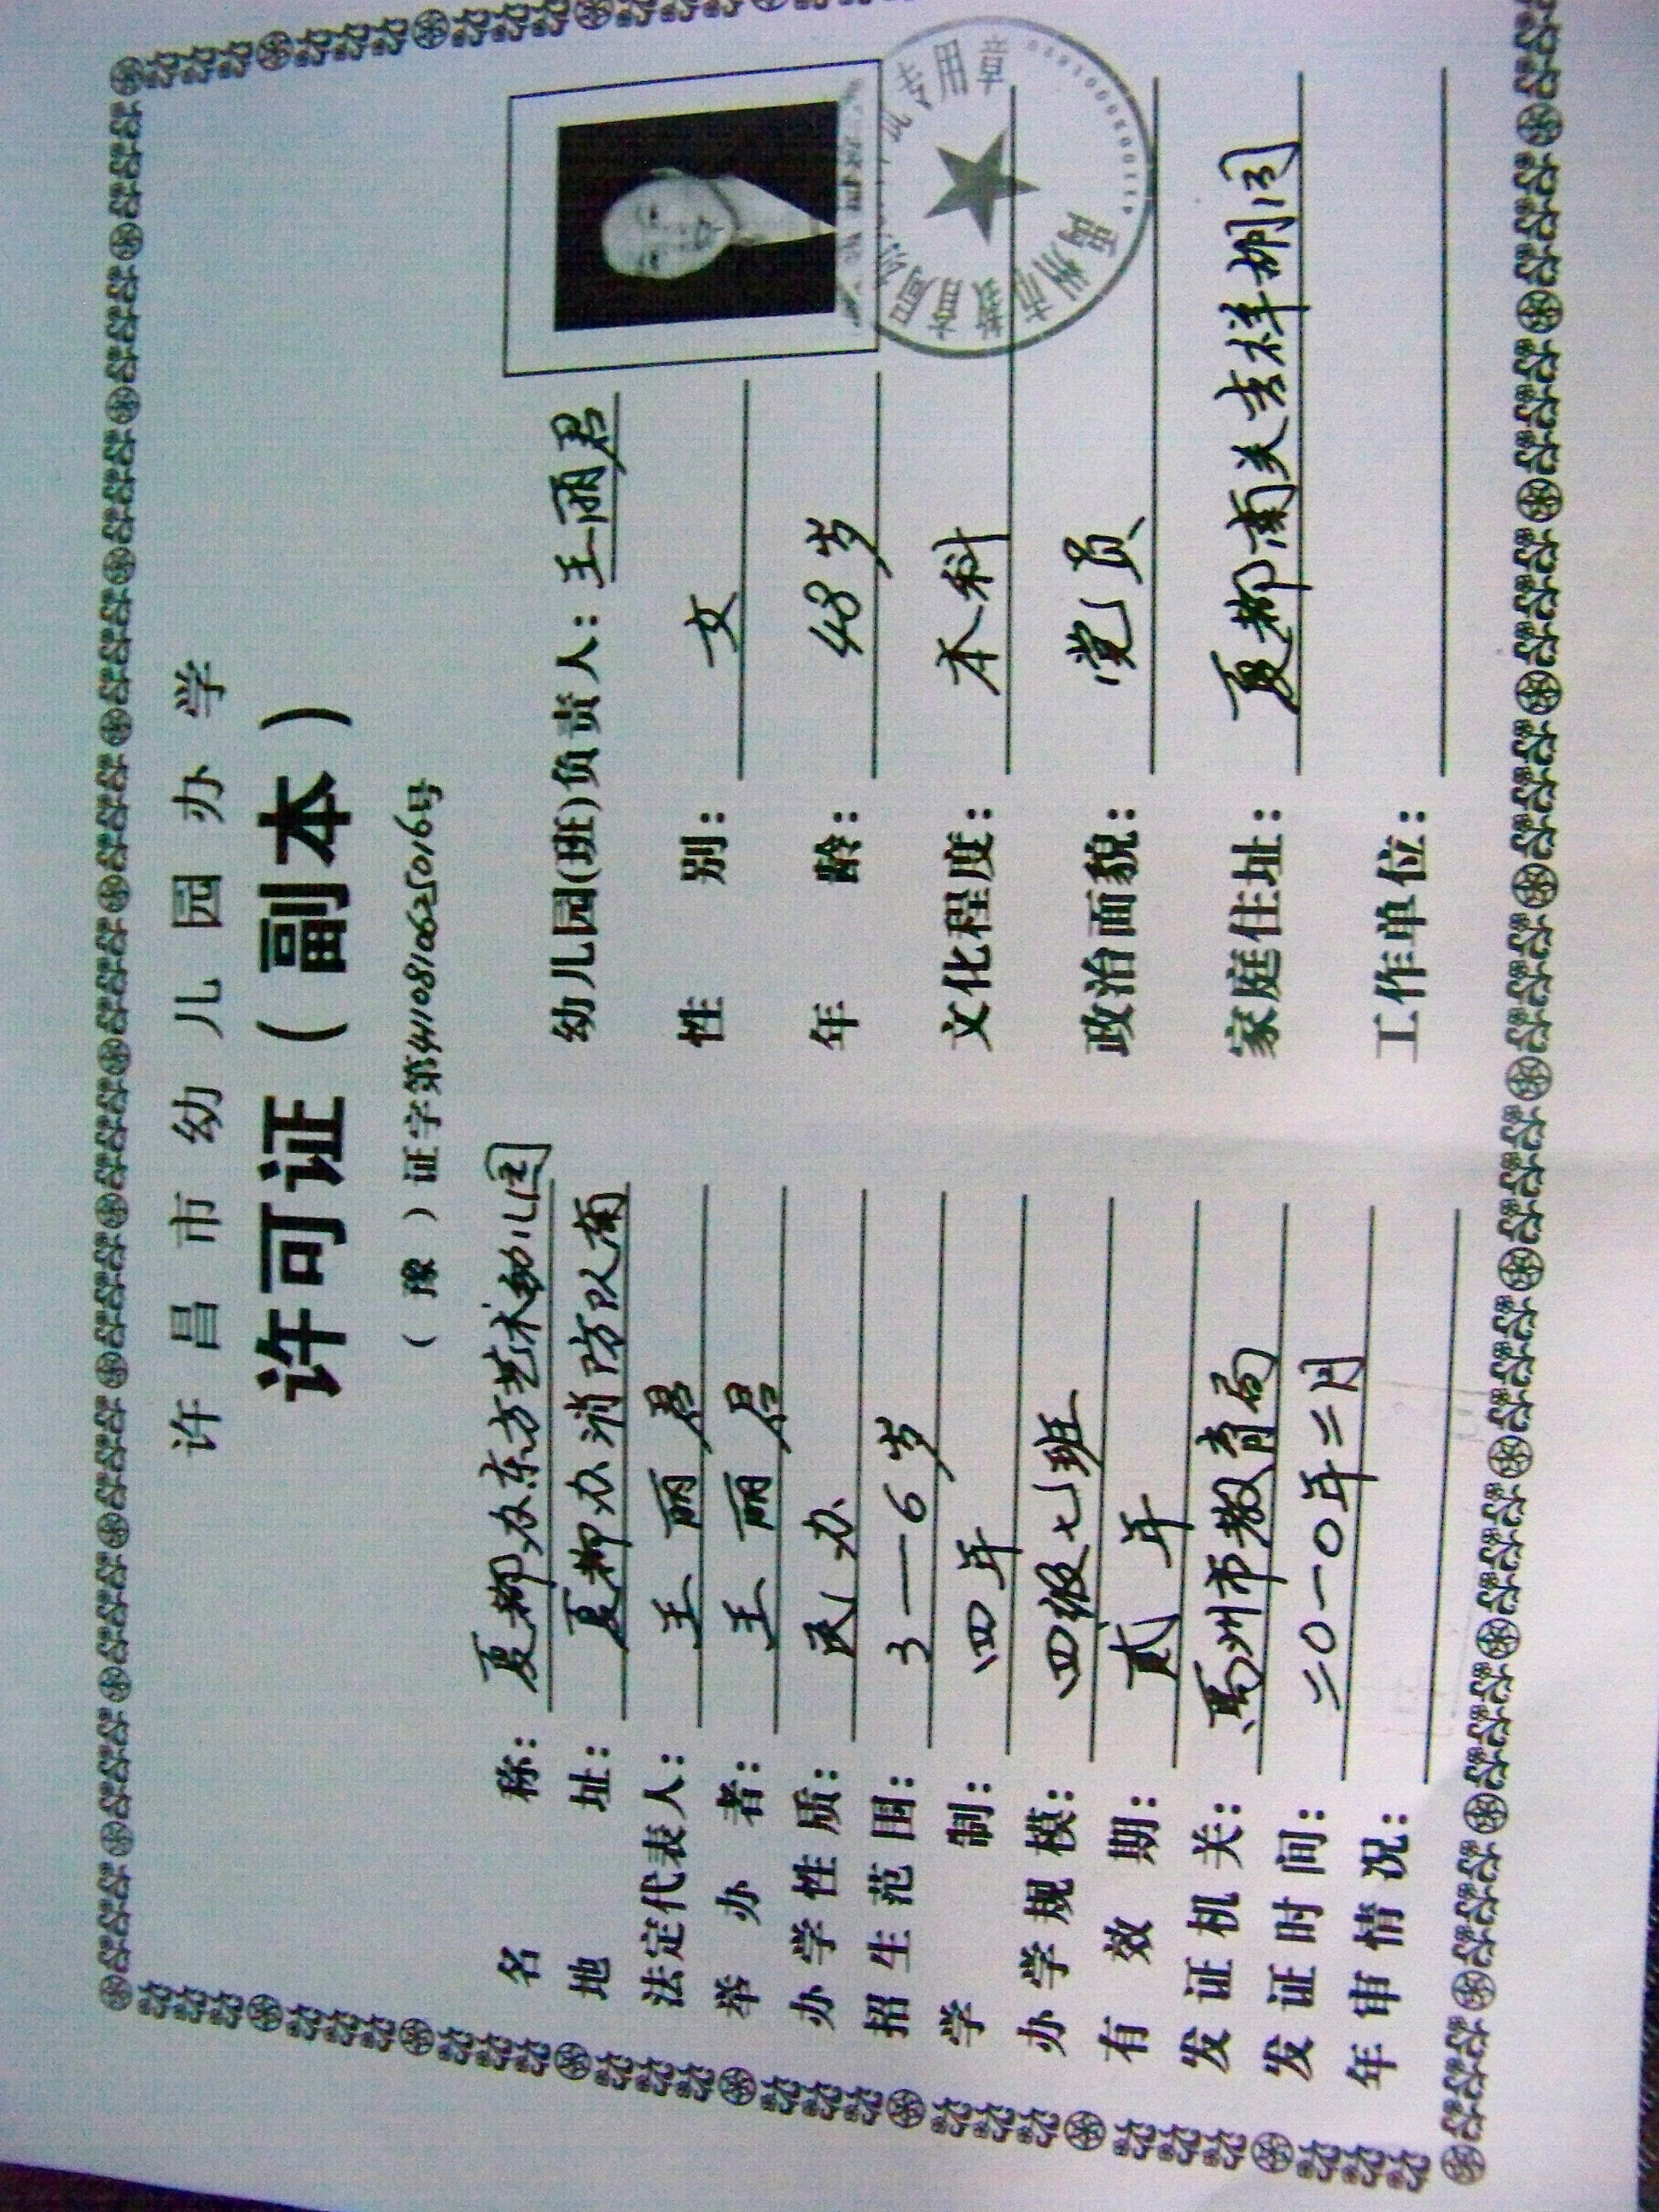 许昌市幼儿园办学
许可证（副本）
（豫）证字第4410810625016号
名称：夏都办东方艺术幼儿园
地址：夏都办消防队南
法定代表人：王丽君
举办者：王丽君
办学性质：民办
招生范围：3—6岁
学制：四年
办学规模：四级七班
有效期：贰年
发证机关：禹州市教育局
发证时间：二0一0年二月
年审情况：
幼儿园(班)负责人：王丽君
性别：女
年龄：48岁
文化程度：本科
政治面貌：党员
家庭住址：夏都南关吉祥胡同
工作单位：
禹州市教育局
专用章